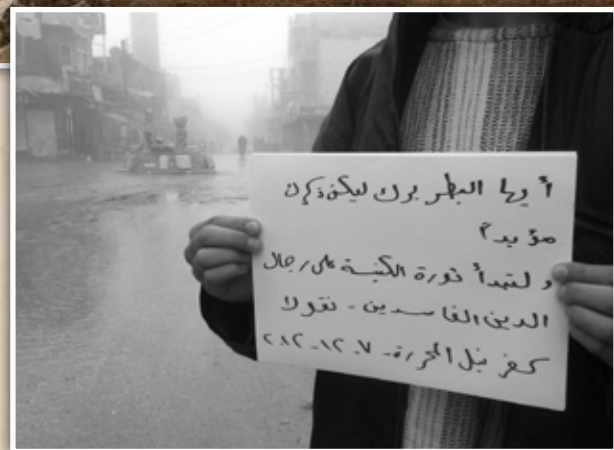 أيها البطريرك ليكن ذكرك
مؤبداً
ولتبدأ ثورة الكنيسة على رجال
الدين الفاسدين - نقولا
كفرنبل المحررة - ٧ - ١٢ - ٢٠١٢